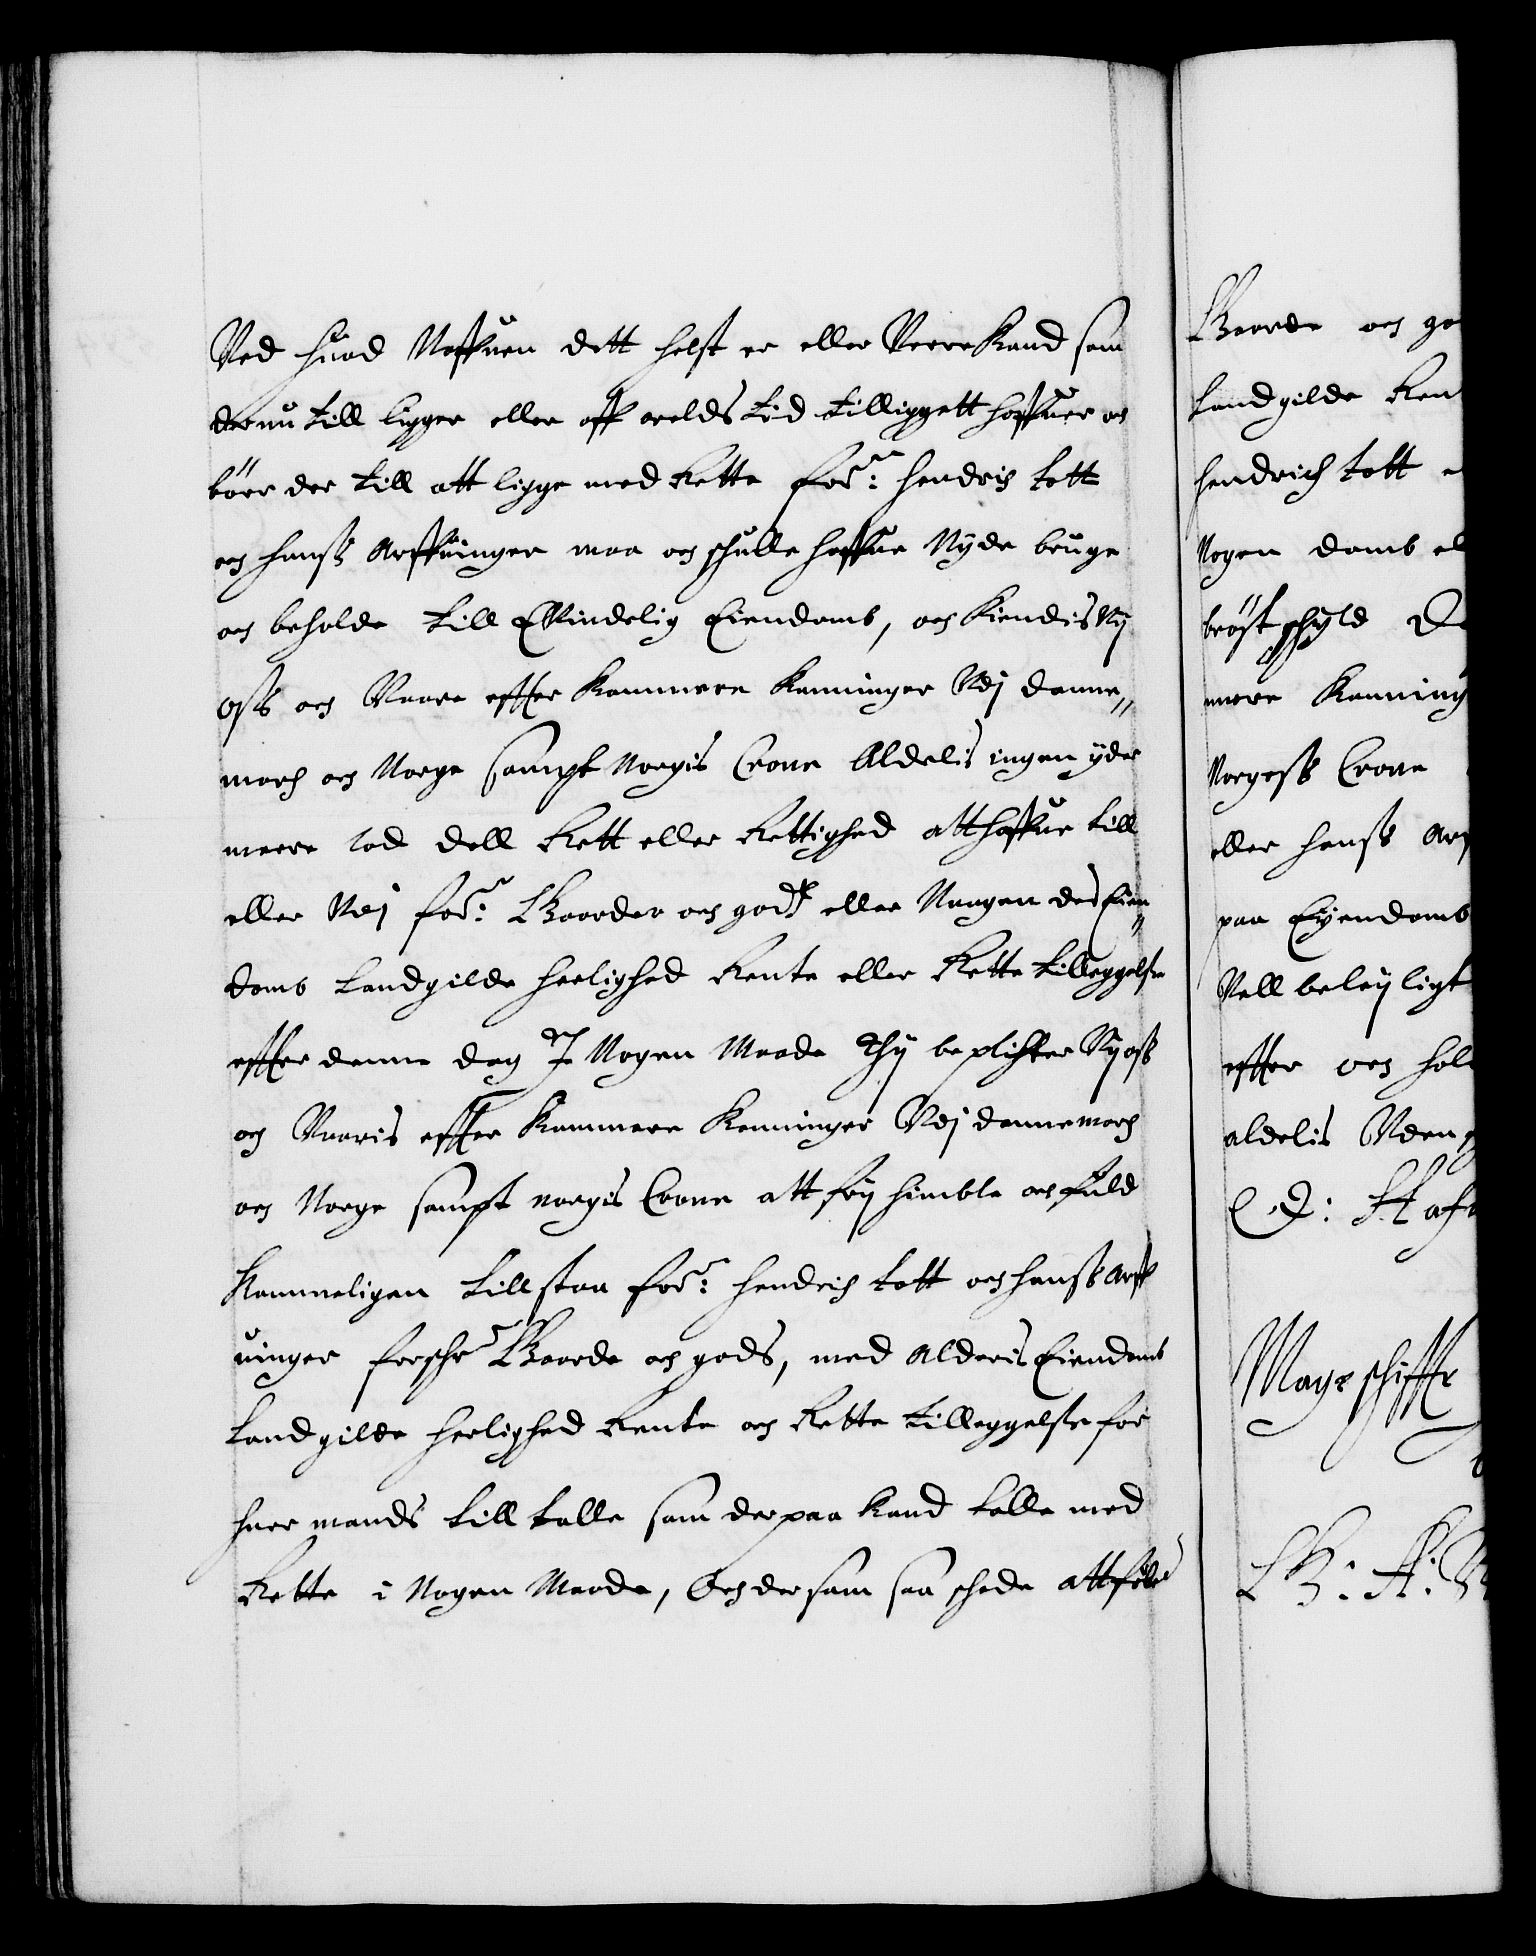 Ved huad Naffuen dett helst er eller Verre kand som
der nu till ligger eller aff arilds tid tilliggett haffuer oc
bör der till att ligge med Rette for.ne: Hendrich tott
oc hanß Arffuinger maa och schulle haffue Nyde bruge
och beholde till Evindelig Eiendomb, och kiendis Vij
Oß och Vaare effter kommere konninger Vdj danne„
march och Norge sampt Norgis Crone Aldelis ingen yder
meere lod dell Rett eller Rettighed att haffue till
eller Vdj for.ne: Gaarder och gods eller Naagen des Eien„
domb Landgilde herlighed Rente eller Rette tilleggelse
effter denne dag J Nogen Maade Thij beplichter Vij oß
och Vaaris effter kommere konninger Vdj dannemarch
och Norge sampt norgis Crone att frij himble och fuld
kommeligen till staa for.ne: Hendrich tott och hanß Arff
uinger forschr.ne Gaarde och gods, med Alderis Eiendomb
Landgilde herlighed Rente och Rette tilleggelse for
huer mands till talle som der paa kand talle med
Rette i Nogen Maade, Och der som saa schede att forne
Gaarde och go
Landgilde Ren
Hendrich tott
Nogen domb el
bröst schyld
mere Konning
Norgeß Crone
eller hanß Arf
paa Eyendomb
Vell beleyligt
effter och hol
aldelis Vden
Cd: Hafn
Mageschiffte
G: A: